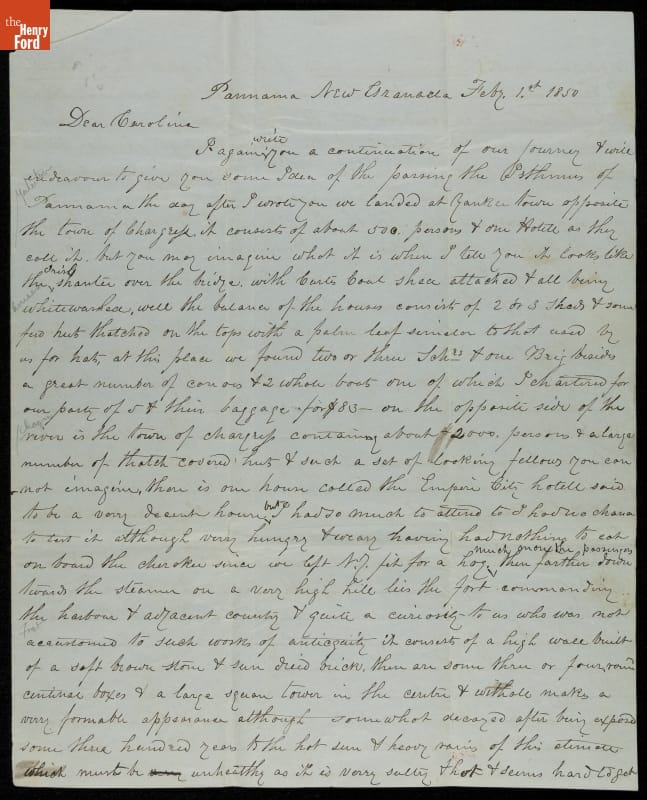 the
Henry
Ford
Pannama New Granada Feby. 1.st 1850
Dear Caroline
I again write you a continuation of our Journey & will
endeavour to give you some Idea of the passing the Isthmus of
Pannama the day after I wrote you we landed at Yankee town opposite
the town of Chargress it consists of about 500. persons & one Hotell as they
call it. but you may imagine what it is when I tell you it looks like
the Irish shanter over the bridge. with Coal shed attached & all being
whitewashed, well the balance of the houses consists of 2 or 3 sheds & some
few huts thatched on the tops with a palm leaf similar to that used by
us for hats, at this place we found two or three Schrs & one Brig besides
a great number of canoes & 2 whale boats one of which I chartered for
our party of 5 & their baggage for $83— on the opposite side of the
river is the town of chargress containing about 2000. persons & a large
number of thatch covered huts & such a set of looking fellows you can
not imagine, there is one house called the Empire City hotell said
to be a very decent house but I had so much to attend to I had no chance
to test it although very hungry & weary having had nothing to eat
on board the cherokee since we left N.Y. fit for a hog, much more for passengers then farther down
towards the steamer on a very high hill lies the fort commanding
the harbour & adjacent country & quite a curiosity to us who was not
accustomed to such works of antiquity it consists of a high wall built
of a soft brown stone & sun dried brick, there are some three or four
centinal boxes & a large square tower in the centre & withall makes a
very formable appearance although somewhat decayed after being exposed
some three hundred years to the hot sun & heavy rains of this climate
which must be unhealthy as it is very sultry & hot & seems hard to get